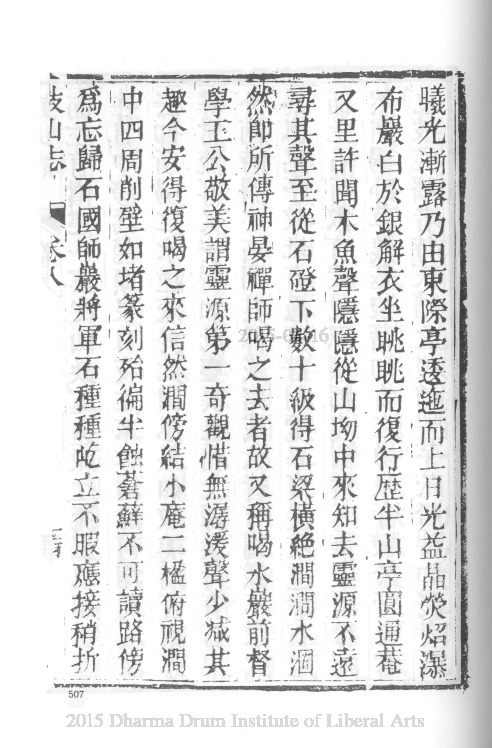 曦光漸露乃由東際亭透迤而上日光益晶熒炤瀑
布巖白於銀解衣坐眺眺而復行歷半山亭圓通菴
又里許聞木魚聲隱隱從山坳中來知去靈源不遠
尋其聲至從石磴下數十級得石梁橫絶澗澗水涸
然卽所傳神晏禪師喝之去者故又稱喝水巖前督
學王公敬美謂靈源第一奇觀惜無潺湲聲少減其
趣今安得復喝之來信然澗傍結小庵二楹俯視澗
中四周削壁如堵篆刻殆徧半蝕蒼蘚不可讀路傍
爲忘歸石國師巖將軍石種種屹立不暇應接稍折
鼓山志 卷八
507
2015 Dharma Drum Institute of Liberal Arts